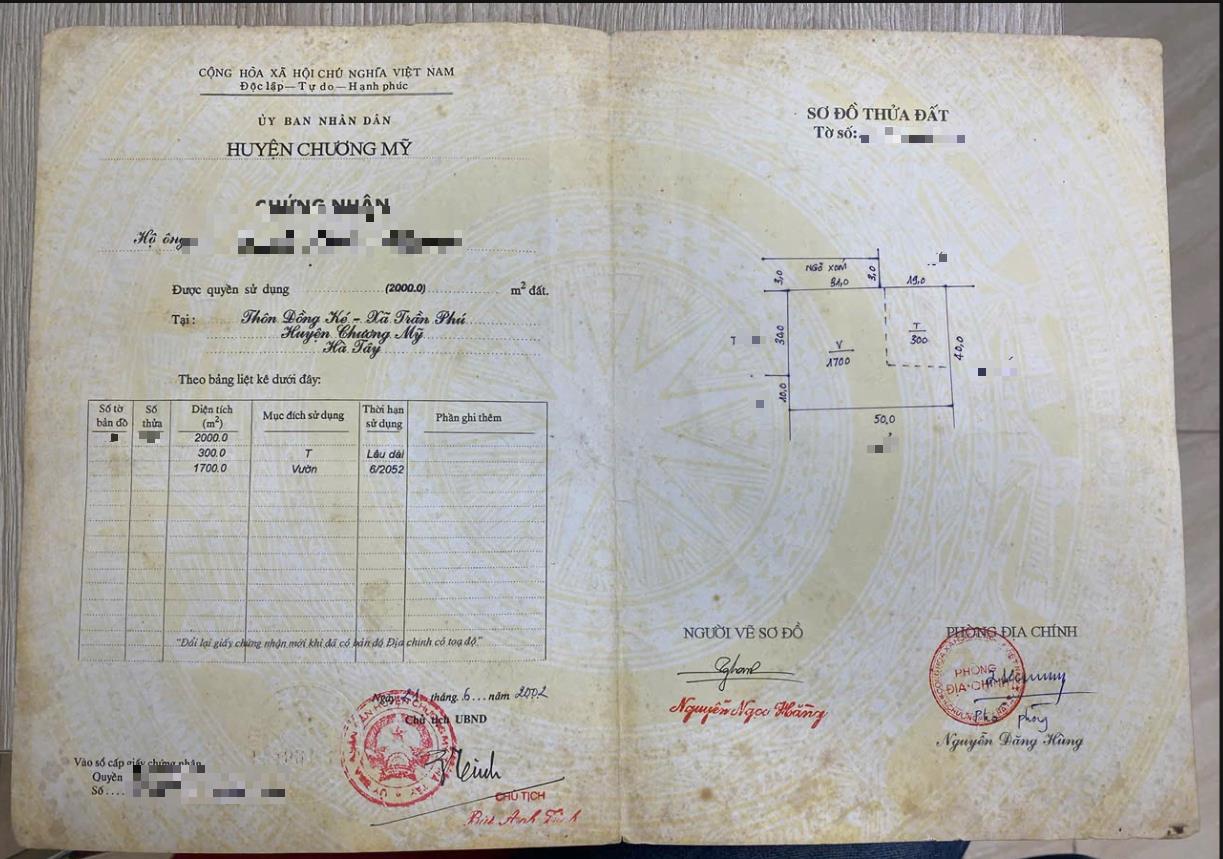 CỘNG HÒA XÃ HỘI CHỦ NGHĨA VIỆT NAM
Độc lập — Tự do — Hạnh phúc
ỦY BAN NHÂN DÂN
HUYỆN CHƯƠNG MỸ
CHỨNG NHẬN
Hộ ông
Được quyền sử dụng (2000.0) m² đất.
Tại: Thôn Đồng Ké - Xã Trần Phú
Huyện Chương Mỹ
Hà Tây
Theo bảng liệt kê dưới đây:
Số tờ bản đồ Số thửa Diện tích (m²) Mục đích sử dụng Thời hạn sử dụng Phần ghi thêm
2000.0
300.0 T Lâu dài
1700.0 Vườn 6/2052
"Đổi lại giấy chứng nhận mới khi đã có bản đồ Địa chính có toạ độ."
Ngày 21 tháng 6 năm 2002
Chủ tịch UBND
CHỦ TỊCH
Vào sổ cấp giấy chứng nhận
Quyển
Số
SƠ ĐỒ THỬA ĐẤT
Tờ số:
3,0 NGÕ XÓM 3,0
31,0 19,0
T 30,0 V 1700 T 300 40,0
10,0
50,0
NGƯỜI VẼ SƠ ĐỒ
Nguyễn Ngọc Hăng
PHÒNG ĐỊA CHÍNH
PHÒNG
ĐỊA-CHÍNH
Phó phòng
Nguyễn Đăng Hùng